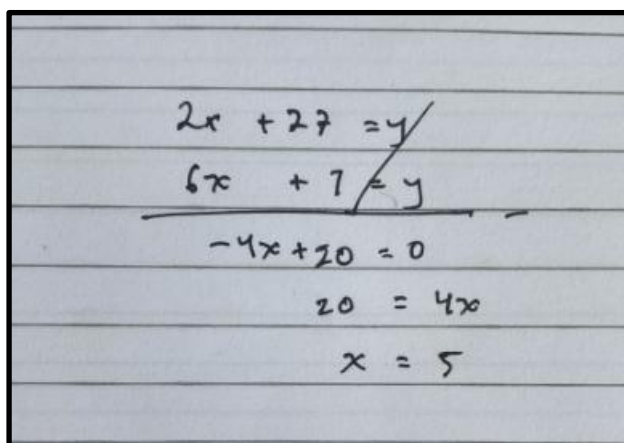 2x + 27 = y
6x + 7 = y
-
-4x + 20 = 0
20 = 4x
x = 5